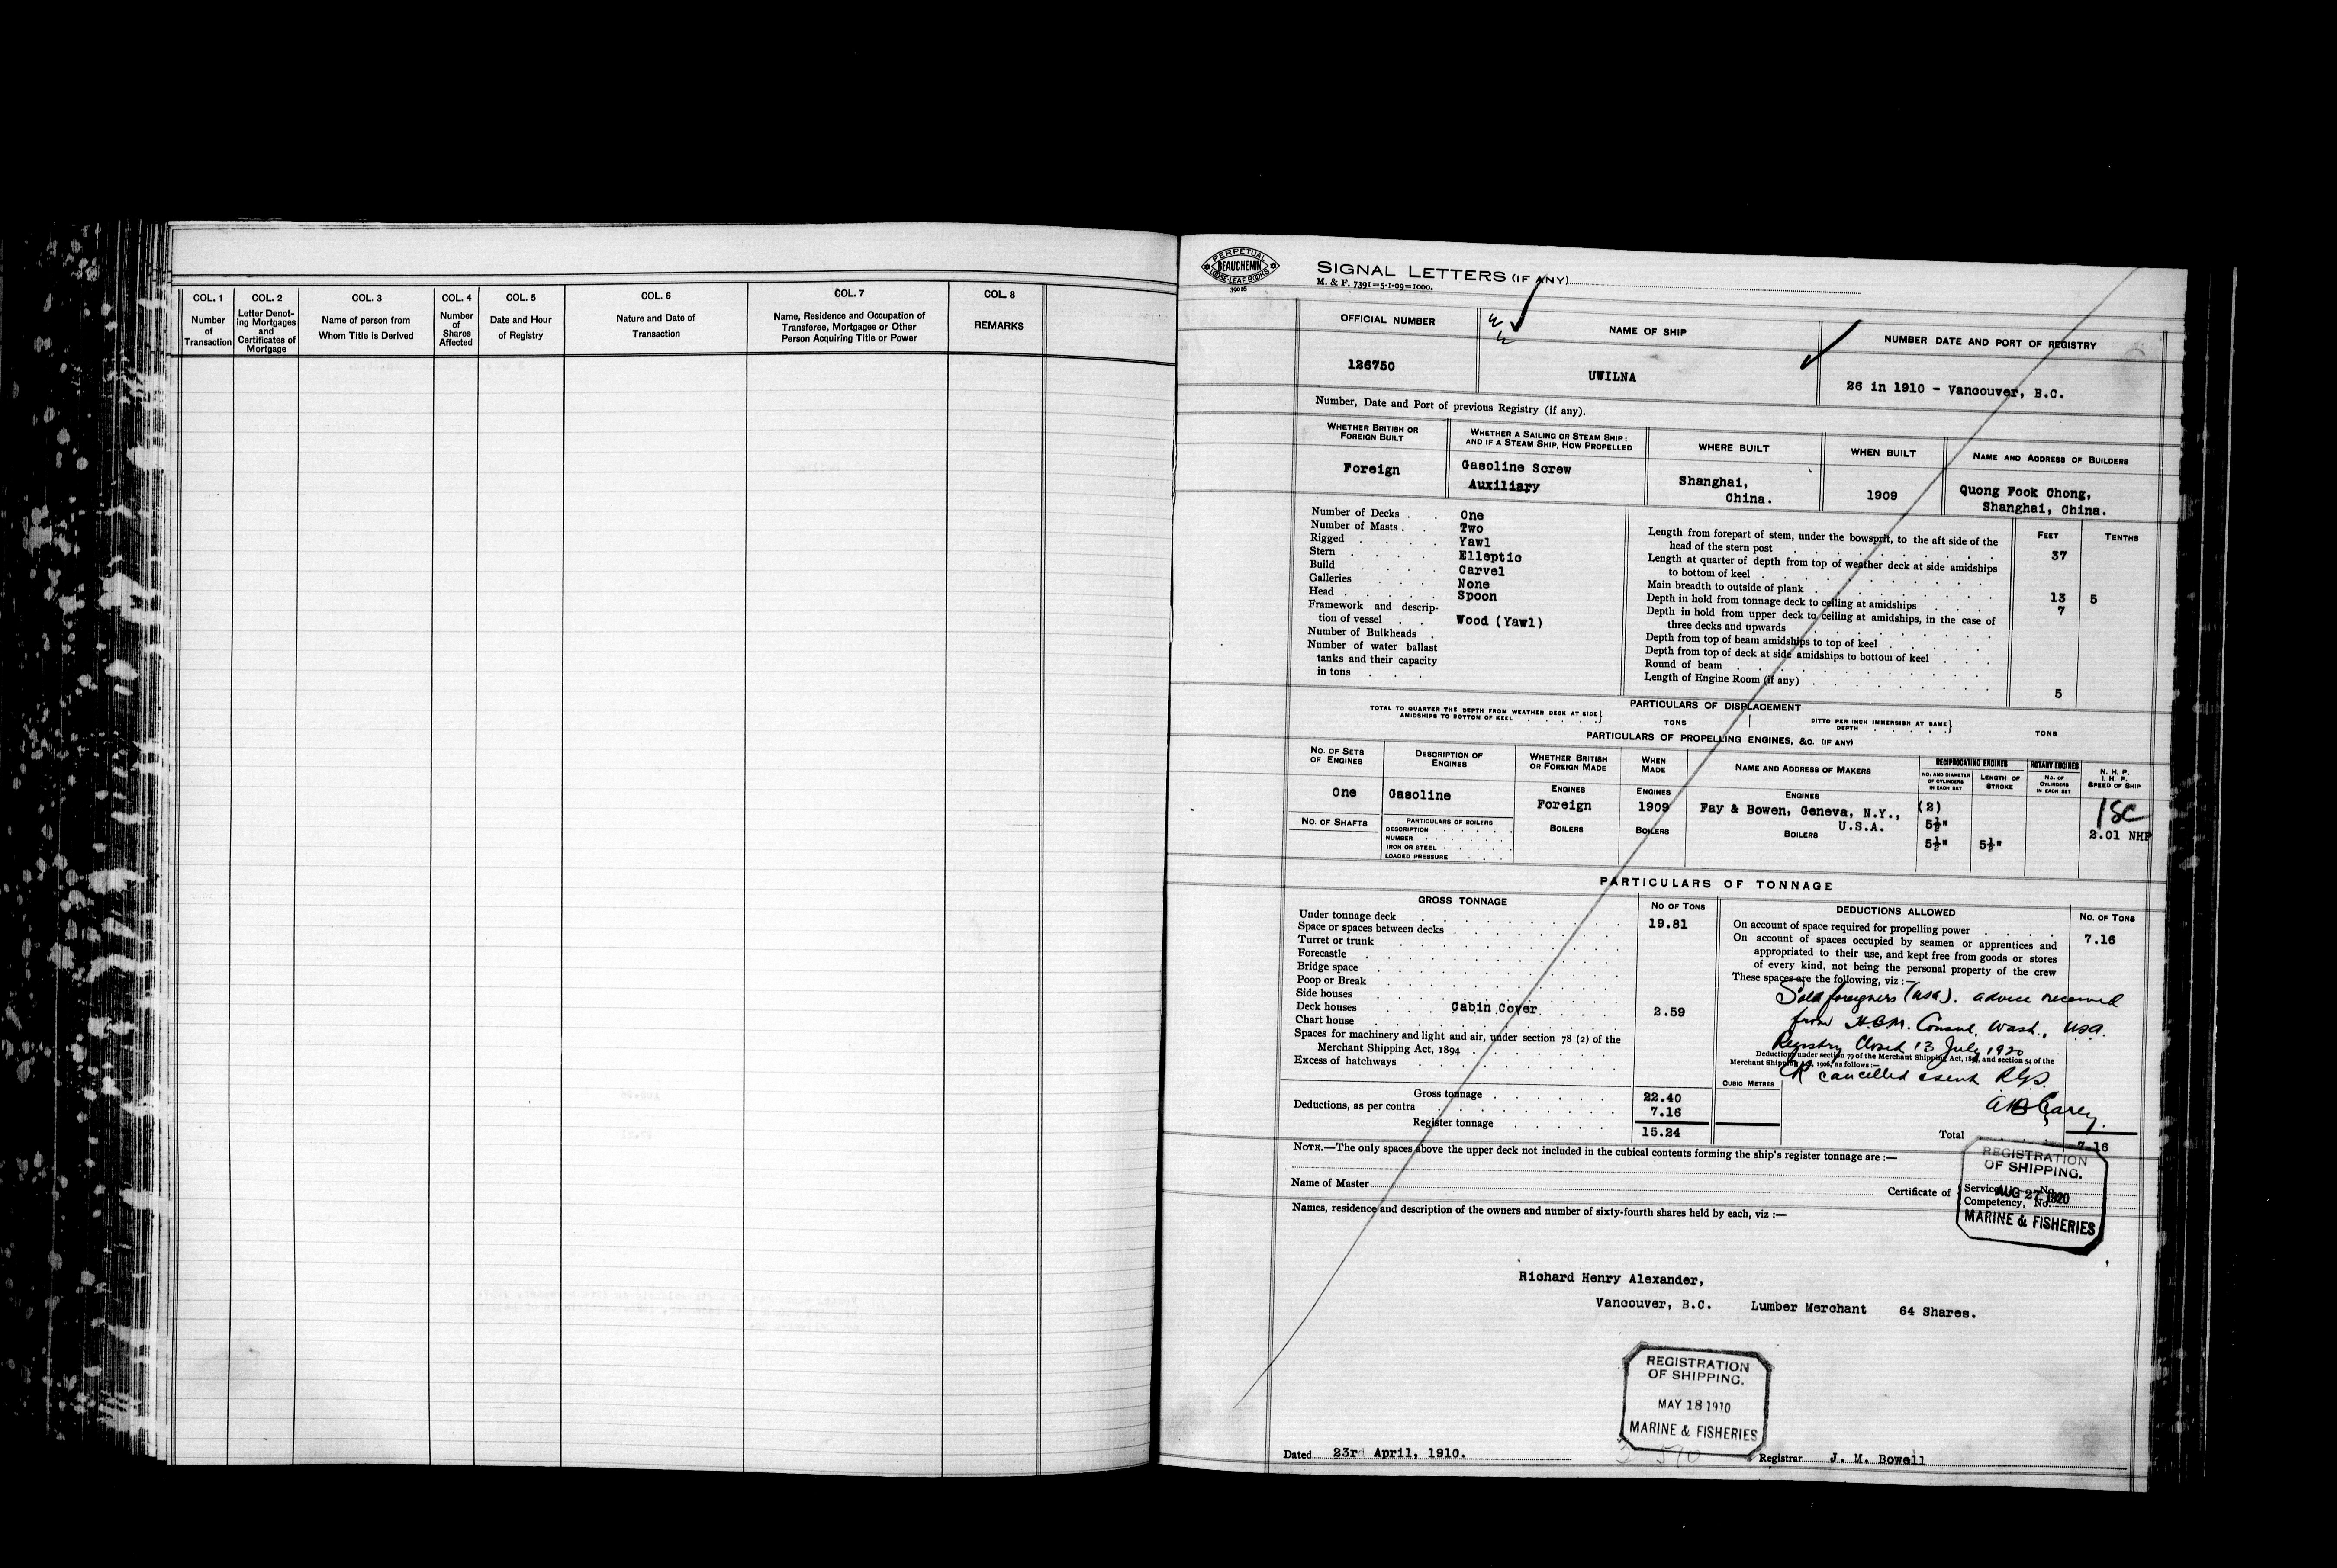 COL. 1
Number
of
Transaction
COL. 2
Letter Denot-
ing Mortgages
and
Certificates of
Mortgage
COL. 3
Name of person from
Whom Title is Derived
COL. 4
Number
of
Shares
Affected
COL. 5
Date and Hour
of Registry
COL. 6
Nature and Date of
Transaction
COL. 7
Name, Residence and Occupation of
Transferee, Mortgagee or Other
Person Acquiring Title or Power
COL. 8
REMARKS
PERPETUAL
BEAUCHEMIN
LOOSE-LEAF BOOKS
39016
SIGNAL LETTERS (IF ANY)
M. & F. 7391=5-1-09=1000.
OFFICIAL NUMBER
126750
NAME OF SHIP
UWILNA
NUMBER DATE AND PORT OF REGISTRY
26 in 1910 - Vancouver, B.C.
Number, Date and Port of previous Registry (if any).
WHETHER BRITISH OR
FOREIGN BUILT
Foreign
WHETHER A SAILING OR STEAM SHIP:
AND IF A STEAM SHIP, HOW PROPELLED
Gasoline Screw
Auxiliary
WHERE BUILT
Shanghai,
China.
WHEN BUILT
1909
NAME AND ADDRESS OF BUILDERS
Quong Fook Chong,
Shanghai, China.
Number of Decks . . One
Number of Masts . . Two
Rigged . . . . Yawl
Stern . . . . Elleptic
Build . . . . Carvel
Galleries . . . None
Head . . . . . Spoon
Framework and descrip-
tion of vessel . . Wood (Yawl)
Number of Bulkheads .
Number of water ballast
tanks and their capacity
in tons . . .
FEET TENTHS
Length from forepart of stem, under the bowsprit, to the aft side of the
head of the stern post 37
Length at quarter of depth from top of weather deck at side amidships
to bottom of keel
Main breadth to outside of plank 13 5
Depth in hold from tonnage deck to ceiling at amidships 7
Depth in hold from upper deck to ceiling at amidships, in the case of
three decks and upwards
Depth from top of beam amidships to top of keel
Depth from top of deck at side amidships to bottom of keel
Round of beam
Length of Engine Room (if any) 5
PARTICULARS OF DISPLACEMENT
TOTAL TO QUARTER THE DEPTH FROM WEATHER DECK AT SIDE
AMIDSHIPS TO BOTTOM OF KEEL
TONS
DITTO PER INCH IMMERSION AT SAME
DEPTH
TONS
PARTICULARS OF PROPELLING ENGINES, &C. (IF ANY)
NO. OF SETS
OF ENGINES
One
NO. OF SHAFTS
DESCRIPTION OF
ENGINES
Gasoline
PARTICULARS OF BOILERS
DESCRIPTION
NUMBER
IRON OR STEEL
LOADED PRESSURE
WHETHER BRITISH
OR FOREIGN MADE
ENGINES
Foreign
BOILERS
WHEN
MADE
ENGINES
1909
BOILERS
NAME AND ADDRESS OF MAKERS
ENGINES
Fay & Bowen, Geneva, N.Y.,
U.S.A.
BOILERS
RECIPROCATING ENGINES
NO. AND DIAMETER
OF CYLINDERS
IN EACH SET
(2)
5½"
5½"
LENGTH OF
STROKE
5½"
ROTARY ENGINES
NO. OF
CYLINDERS
IN EACH SET
N. H. P.
I. H. P.
SPEED OF SHIP
2.01 NHP
PARTICULARS OF TONNAGE
GROSS TONNAGE
NO OF TONS
Under tonnage deck 19.81
Space or spaces between decks
Turret or trunk
Forecastle
Bridge space
Poop or Break
Side houses
Deck houses . . . Cabin Cover 2.59
Chart house
Spaces for machinery and light and air, under section 78 (2) of the
Merchant Shipping Act, 1894
Excess of hatchways
Gross tonnage 22.40
Deductions, as per contra 7.16
Register tonnage 15.24
DEDUCTIONS ALLOWED
NO. OF TONS
On account of space required for propelling power 7.16
On account of spaces occupied by seamen or apprentices and
appropriated to their use, and kept free from goods or stores
of every kind, not being the personal property of the crew
These spaces are the following, viz :—
Sold foreigners (usa). advice received
from H.B.M. Consul, Wash., usa.
Registry Closed 13 July, 1920
Deductions under section 79 of the Merchant Shipping Act, 1894, and section 54 of the
Merchant Shipping Act, 1906, as follows :—
cancelled
CUBIC METRES
Total 7.16
NOTE.—The only spaces above the upper deck not included in the cubical contents forming the ship's register tonnage are :—
Name of Master
Certificate of
Service, No.
Competency, No.
REGISTRATION
OF SHIPPING.
AUG 27 1920
MARINE & FISHERIES
Names, residence and description of the owners and number of sixty-fourth shares held by each, viz :—
Richard Henry Alexander,
Vancouver, B.C. Lumber Merchant 64 Shares.
REGISTRATION
OF SHIPPING.
MAY 18 1910
MARINE & FISHERIES
Dated 23rd April, 1910.
Registrar J. M. Bowell